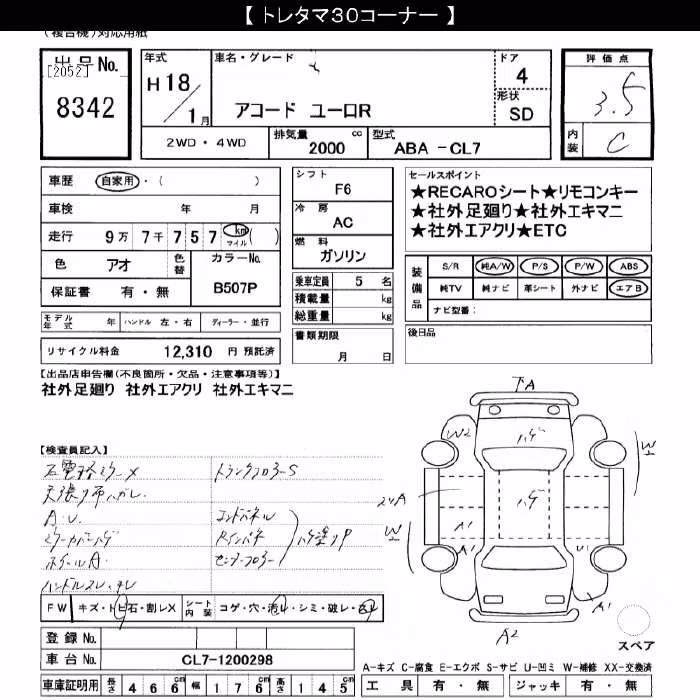 【 トレタマ30コーナー 】
(複合機)対応用紙
出品No.
[2052]
8342
年式
H18/1月
車名・グレード
アコード ユーロR
ドア
4
形状
SD
評価点
3.5
内装
C
2WD・4WD
排気量
2000 cc
型式
ABA -CL7
車歴 自家用・( )
車検 年 月
走行 9万 7千 757 km マイル ( )
色 アオ
色替
カラーNo.
B507P
保証書 有・無
モデル年式 年 ハンドル 左・右 ディーラー・並行
リサイクル料金 12,310 円 預託済
シフト
F6
冷房
AC
燃料
ガソリン
乗車定員 5 名
積載量 kg
総重量 kg
書類期限
月 日
セールスポイント
★RECAROシート★リモコンキー
★社外足廻り★社外エキマニ
★社外エアクリ★ETC
装備品
S/R 純A/W P/S P/W ABS
純TV 純ナビ 革シート 外ナビ エアB
ナビ型番:
後日品
【出品店申告欄(不良箇所・欠品・注意事項等)】
社外足廻り 社外エアクリ 社外エキマニ
【検査員記入】
トランクフロアーS
天張り布ハガレ
A・U
コンドパネル
ホイールA
センターフロアー
ハンドルスレ・
FW キズ・トビ石・割レX
シート内装 コゲ・穴・汚レ・シミ・破レ・
登録No.
車台No. CL7-1200298
車庫証明用 長さ 466cm 幅 176cm 高さ 145cm
下A
W2
ハゲ
W
ハゲ
A
W
A1
A1
U1
A1
A2
スペア
A-キズ C-腐食 E-エクボ S-サビ U-凹ミ W-補修 XX-交換済
工具 有・無 ジャッキ 有・無